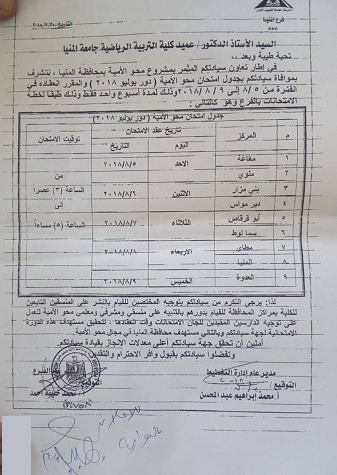 فرع المنيا
السيد الأستاذ الدكتور / عميد كلية التربية الرياضية جامعة المنيا
تحية طيبة وبعد ،،
في إطار تعاون سيادتكم المثمر بمشروع محو الأمية بمحافظة المنيا ، نتشرف
بموافاة سيادتكم بجدول امتحان محو الأمية ( دور يوليو ٢٠١٨ ) والمقرر انعقاده في
الفترة من ٨/٥ إلى ٢٠١٨/٨/٩ وذلك لمدة أسبوع واحد فقط وذلك طبقا لخطة
الامتحانات بالفرع وهو كالتالي :
جدول امتحان محو الأمية ( دور يوليو ٢٠١٨ )
م المركز تاريخ عقد الامتحان توقيت الامتحان
اليوم التاريخ
١ مغاغة الاحد ٢٠١٨/٨/٥
٢ ملوي
٣ بني مزار الاثنين ٢٠١٨/٨/٦
٤ دير مواس
٥ أبو قرقاص الثلاثاء ٢٠١٨/٨/٧
٦ سمالوط
٧ مطاي الاربعاء ٢٠١٨/٨/٨
٨ المنيا
٩ العدوة الخميس ٢٠١٨/٨/٩
من
الساعة (٣) عصرا
إلى
الساعة (٥) مساءا
لذا: يرجى التكرم من سيادتكم بتوجيه المختصين للقيام بالنشر على المنسقين التابعين
للكلية بمراكز المحافظة للقيام بدورهم بالتنبيه على منسقي ومشرفي ومعلمي محو الأمية للعمل
على توجيه الدارسين المقيدين للجان الامتحانات وقت انعقادها ، لتحقيق مستهدف هذه الدورة
الامتحانية لجهة سيادتكم وبالتالي مستهدف محافظة المنيا في مجال محو الأمية.
آملين أن تحقق جهة سيادتكم أعلى معدلات الإنجاز بقيادة سيادتكم.
وتفضلوا سيادتكم بقبول وافر الاحترام والتقدير
مدير عام إدارة التخطيط
التوقيع /
أ. محمد إبراهيم عبد المحسن
الفرع
التوقيع